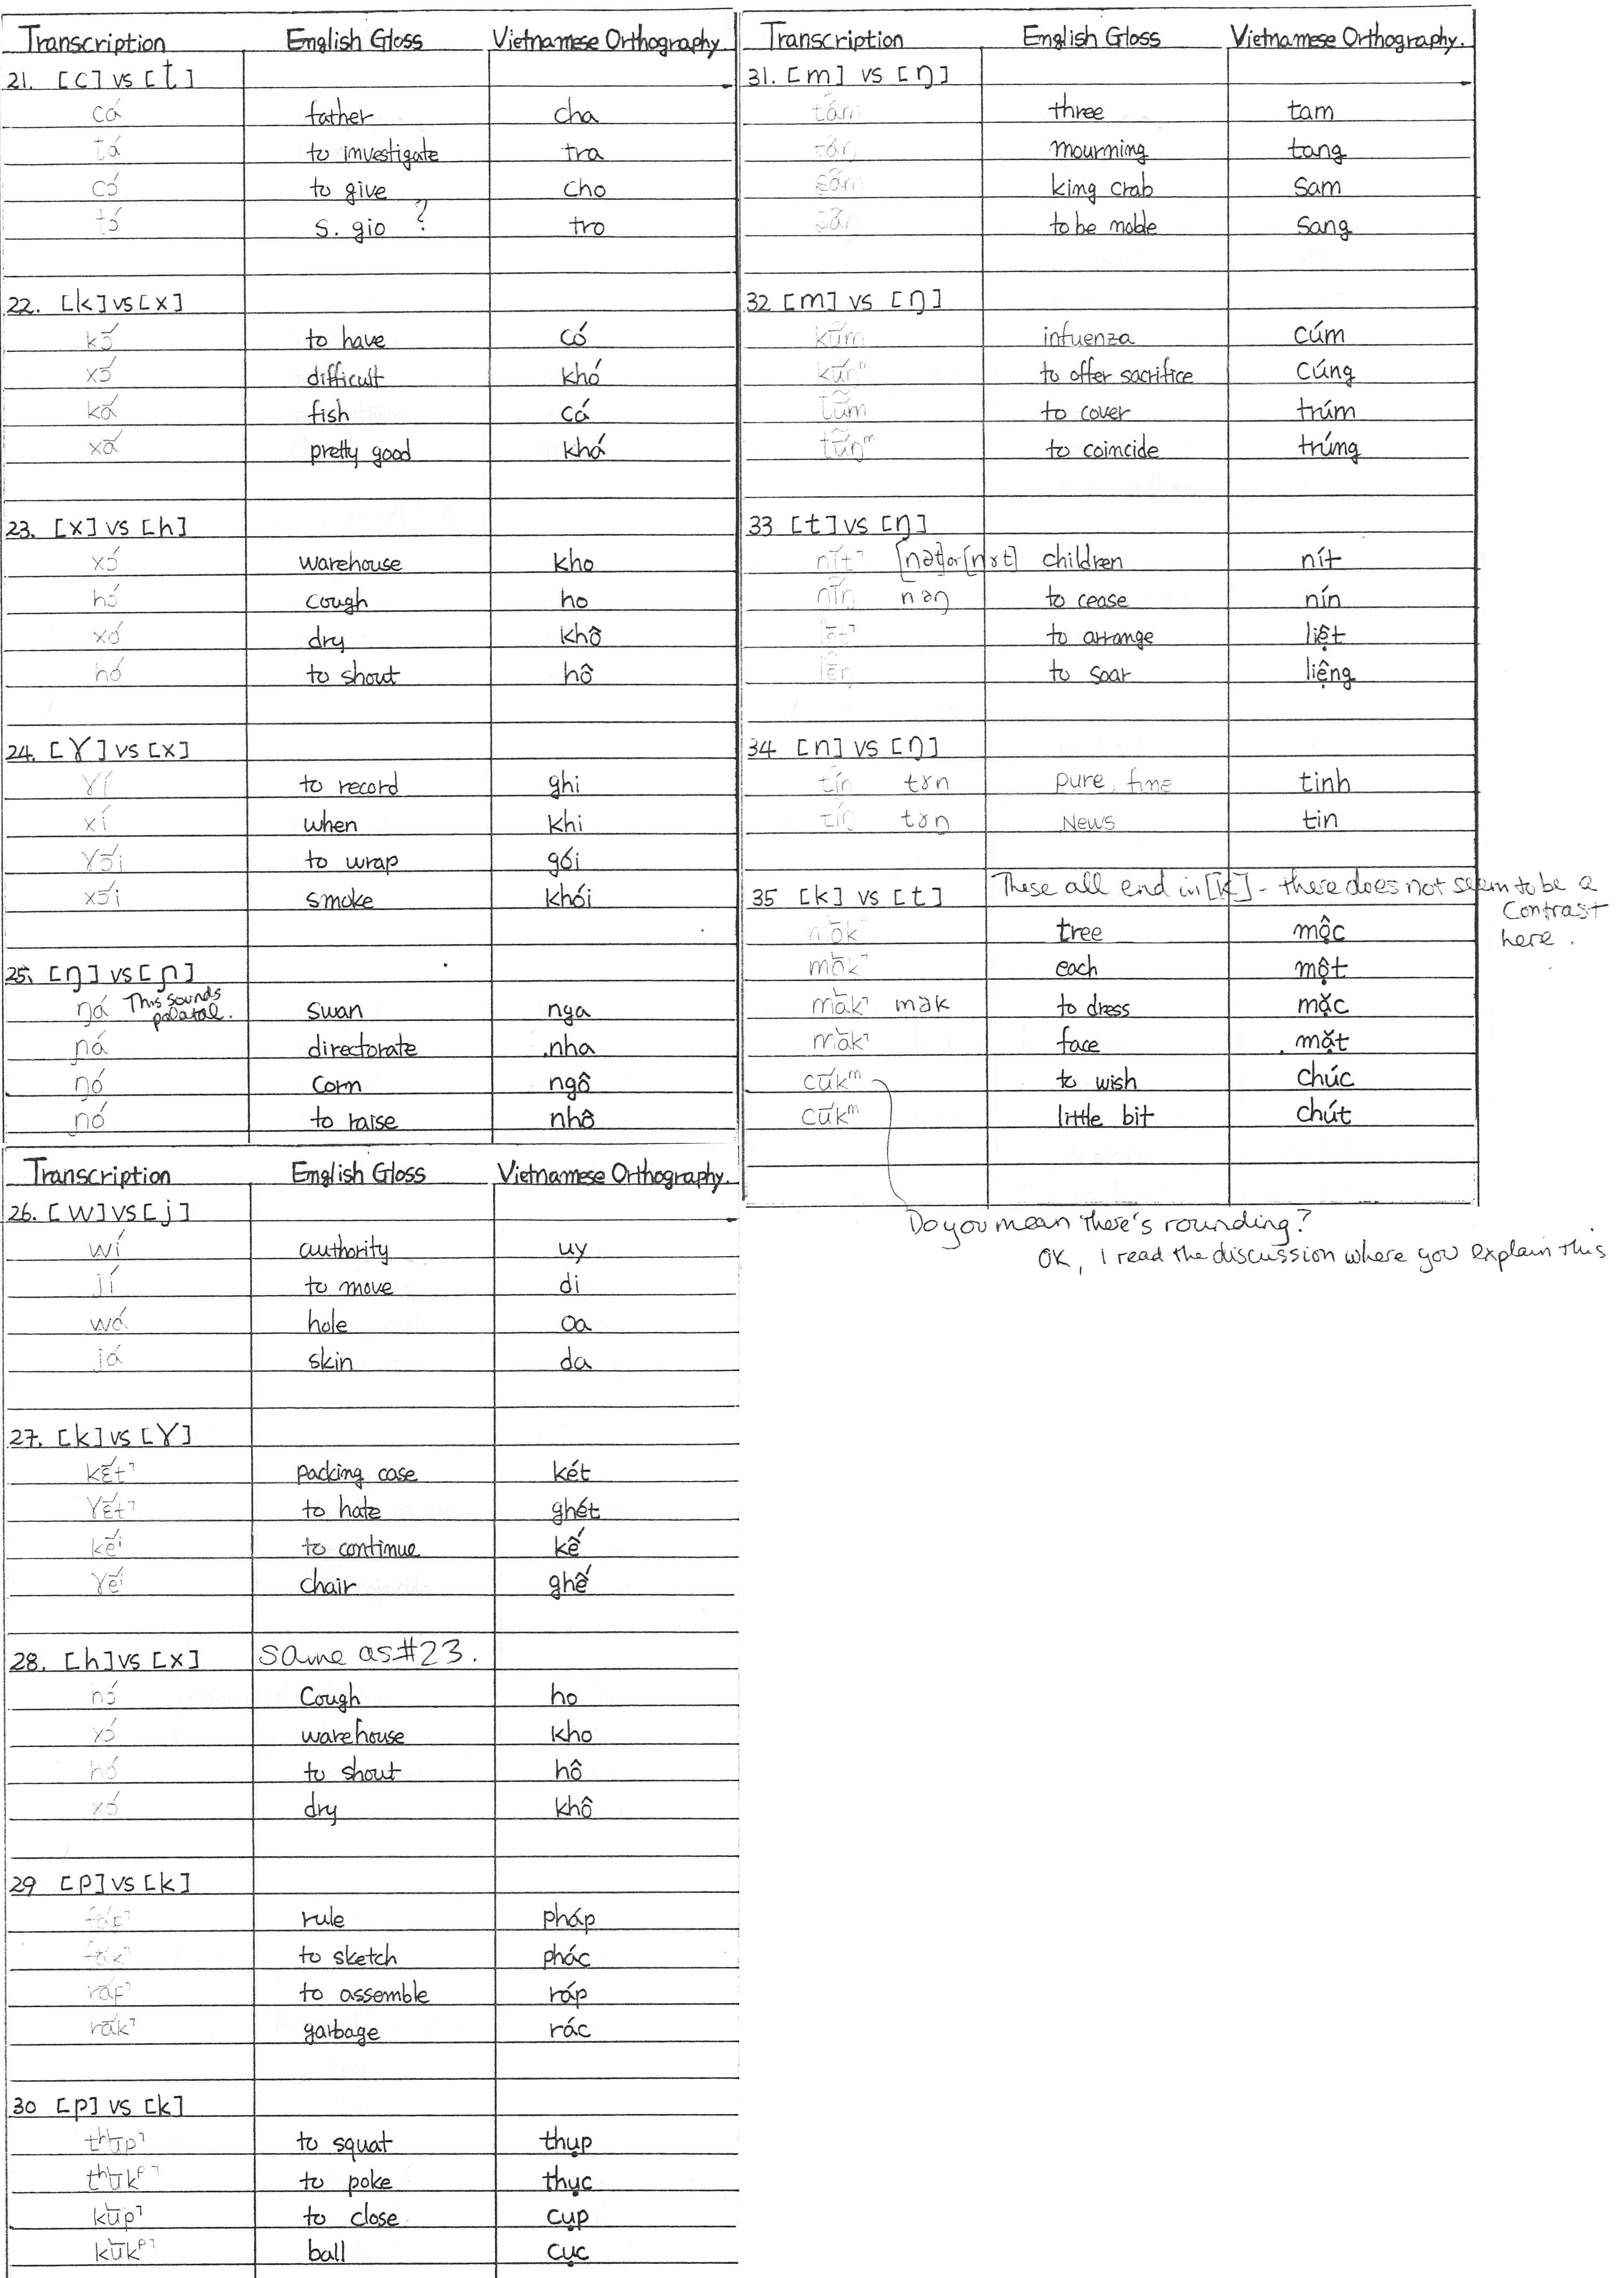 Transcription English Gloss Vietnamese Orthography
21. [c] vs [ʈ]
cá father cha
ʈá to investigate tra
cɔ́ to give cho
ʈɔ́ S. gio ? tro
22. [k] vs [x]
kɔ̄́ to have có
xɔ̄́ difficult khó
kā́ fish cá
xā́ pretty good khá
23. [x] vs [h]
xɔ́ warehouse kho
hɔ́ cough ho
xó dry khô
hó to shout hô
24. [ɣ] vs [x]
ɣí to record ghi
xí when khi
ɣɔ̄́i to wrap gói
xɔ̄́i smoke khói
25. [ŋ] vs [ɲ]
ŋá This sounds palatal. swan nga
ɲá directorate nha
ŋó corn ngô
ɲó to raise nhô
Transcription English Gloss Vietnamese Orthography.
26. [w] vs [j]
wí authority uy
jí to move di
wá hole oa
já skin da
27. [k] vs [ɣ]
kɛ̄́t˺ packing case két
ɣɛ̄́t˺ to hate ghét
kḗi to continue kế
ɣḗi chair ghế
28. [h] vs [x] Same as #23.
hɔ́ Cough ho
xɔ́ warehouse kho
hó to shout hô
xó dry khô
29 [p] vs [k]
fā́p˺ rule pháp
fā́k˺ to sketch phác
rā́p˺ to assemble ráp
rā́k˺ garbage rác
30 [p] vs [k]
tʰū̀p˺ to squat thụp
tʰū̀kᵖ˺ to poke thục
kū̀p˺ to close cụp
kū̀kᵖ˺ ball cục
Transcription English Gloss Vietnamese Orthography.
31. [m] vs [ŋ]
tám three tam
táŋ mourming tang
sám king crab sam
sáŋ to be noble sang
32 [m] vs [ŋ]
kū́m infuenza cúm
kū́ŋᵐ to offer sacrifice cúng
ʈū́m to cover trúm
ʈū́ŋᵐ to coincide trúng
33 [t] vs [ŋ]
nī́t˺ [nət] or [nɤt] children nít
nī́ŋ nəŋ to cease nín
to arrange liệt
to soar liệng
34 [n] vs [ŋ]
tín tɤn pure, fine tinh
tíŋ tɤŋ News tin
35 [k] vs [t] These all end in [k] - there does not seem to be a contrast here.
mṑk tree mộc
mṑk˺ each một
mā̀k˺ mək to dress mặc
mā̀k˺ face mặt
cū́kᵐ to wish chúc
cū́kᵐ little bit chút
Do you mean there's rounding?
OK, I read the discussion where you explain this